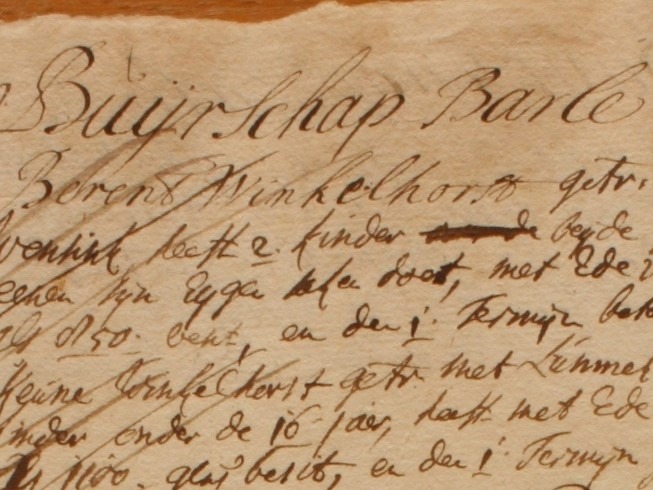 Buijrschap Barle
Berent Winkelhorst getr:
Wensink heeft 2. kinder beyde
eenen syn Eygen doet, met Ede
als 850. besit, en den 1. Termyn
Kleine Winkelhorst getr met Lummel
kinder onder de 16 jaer, heeft met Ede
als 1100. besit, en den 1. Termyn